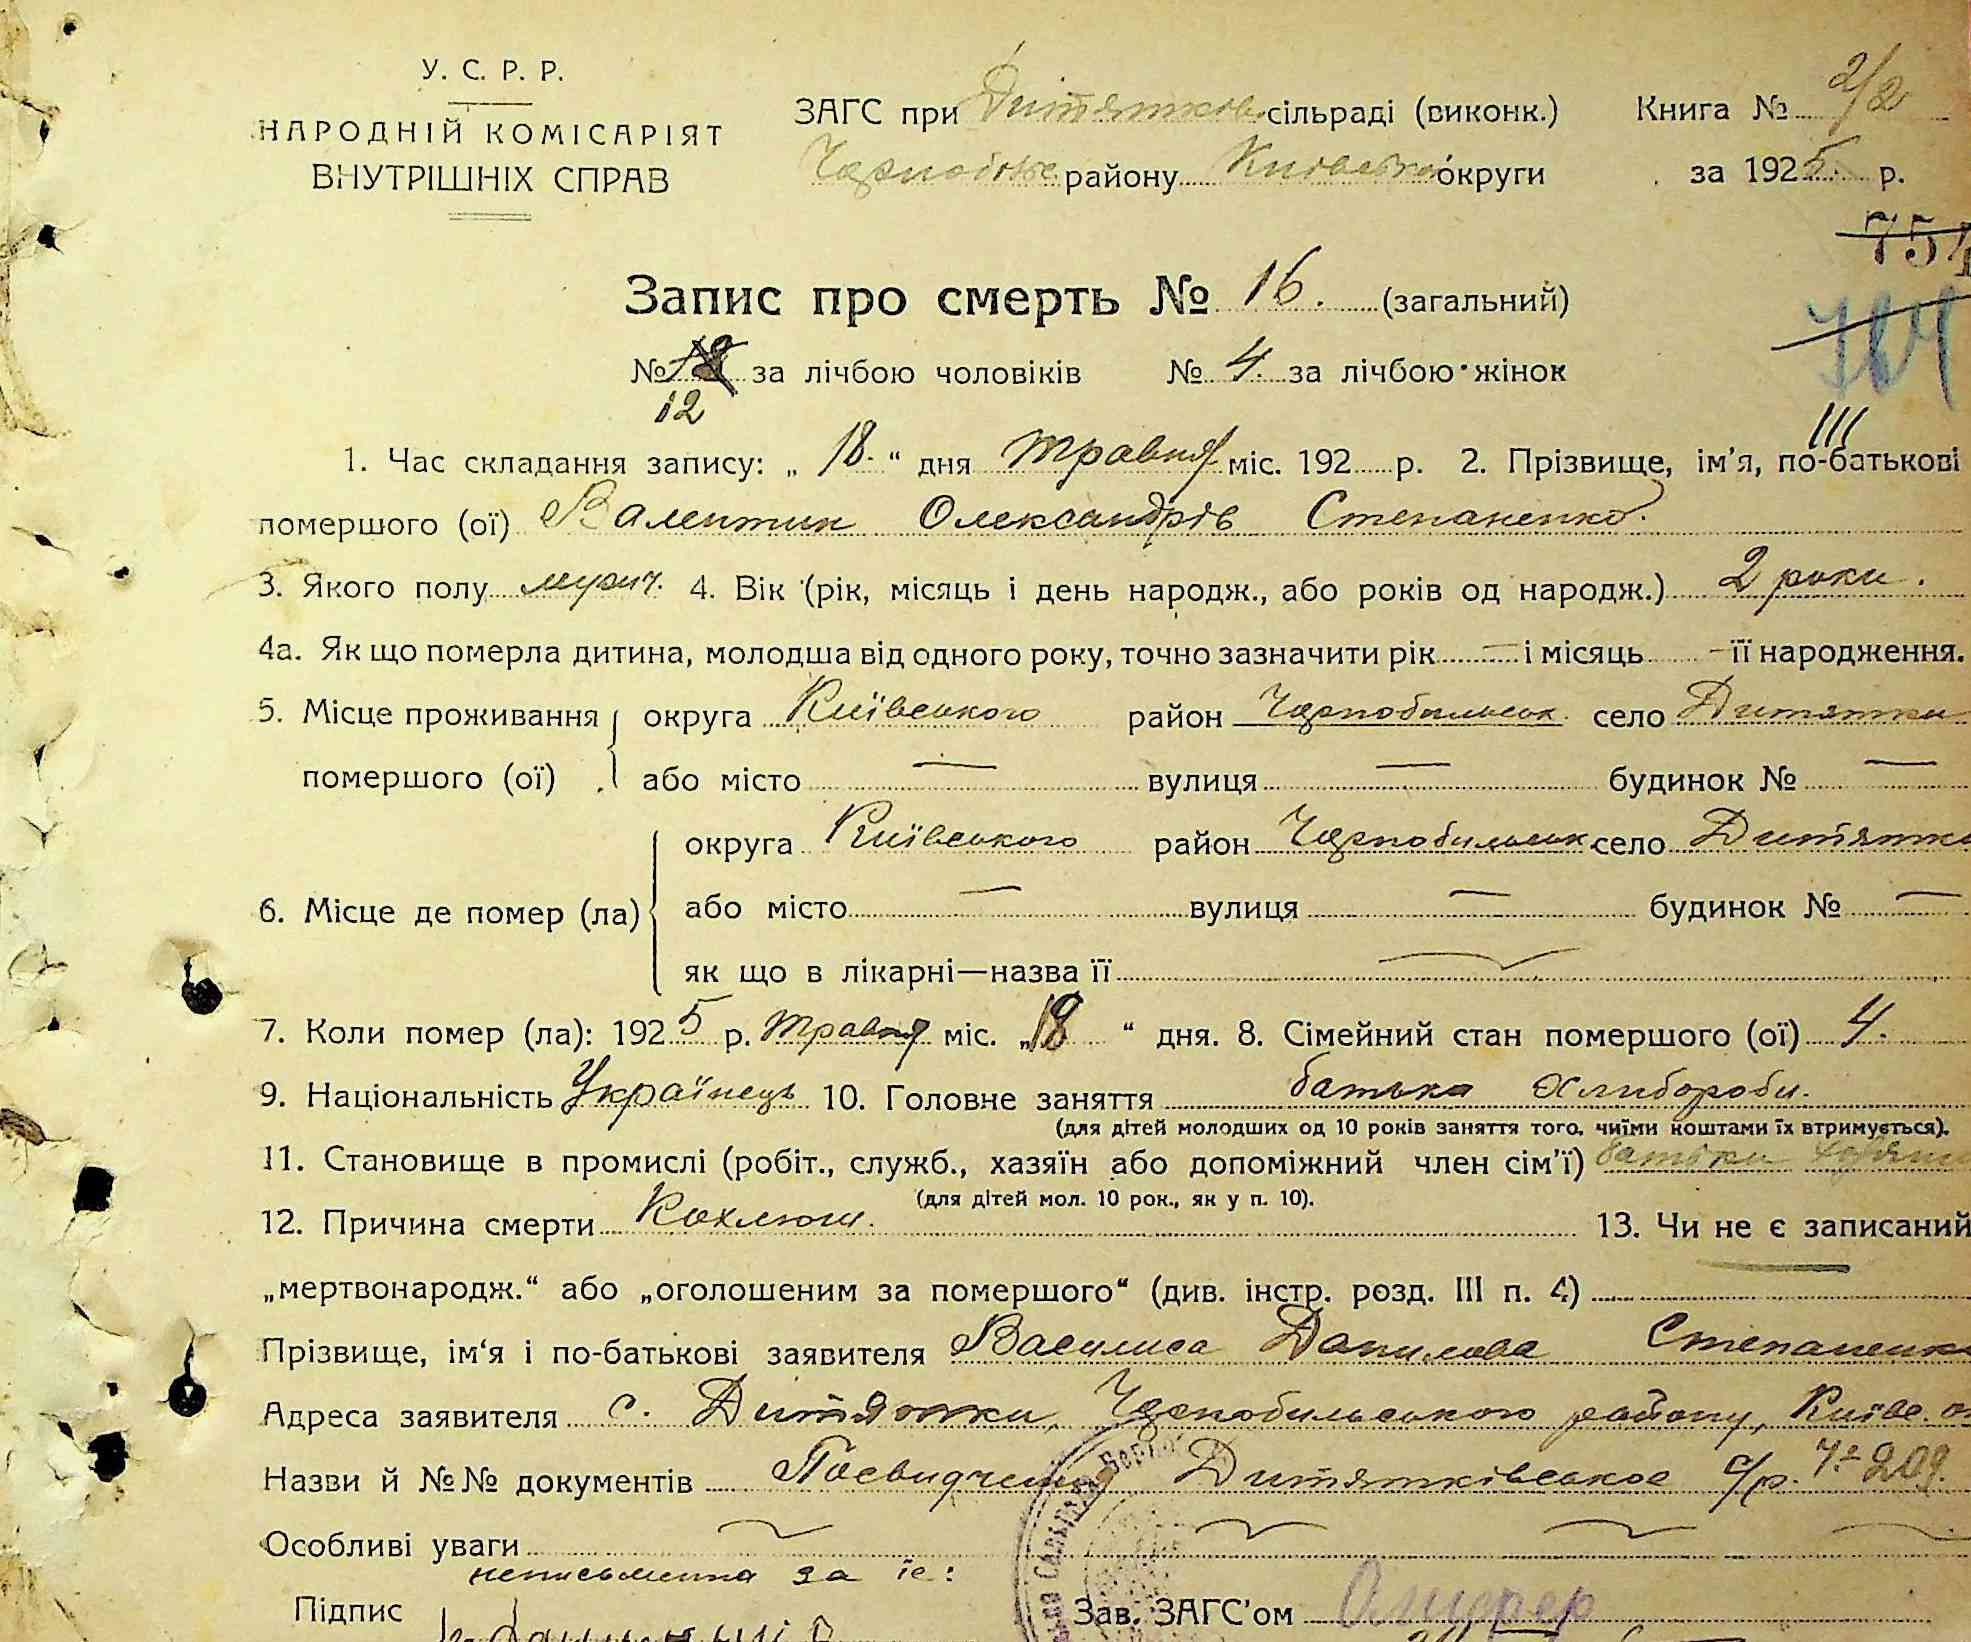 У. С. Р. Р.
НАРОДНІЙ КОМІСАРІЯТ
ВНУТРІШНІХ СПРАВ
ЗАГС при Дитятков. сільраді (виконк.)
Чорнобильс району Київської округи
Книга № 2/2
за 1925 р.
754
764
Запис про смерть № 16. (загальний)
№ за лічбою чоловіків № 4. за лічбою жінок
12
III
1. Час складання запису: „ 18. “ дня травня міс. 192 р. 2. Прізвище, ім'я, по-батькові
помершого (ої) Валентин Олександрів Степаненко.
3. Якого полу мужч. 4. Вік (рік, місяць і день народж., або років од народж.) 2 роки.
4а. Як що померла дитина, молодша від одного року, точно зазначити рік — і місяць — її народження.
5. Місце проживання помершого (ої) округа Київського район Чорнобильськ. село Дитятки
або місто — вулиця — будинок № —
6. Місце де помер (ла) округа Київського район Чорнобильськ. село Дитятки
або місто — вулиця — будинок № —
як що в лікарні—назва її
7. Коли помер (ла): 1925 р. травня міс. „18 “ дня. 8. Сімейний стан помершого (ої) 4.
9. Національність Українець 10. Головне заняття батька хлибороби.
(для дітей молодших од 10 років заняття того, чиїми коштами їх втримується).
11. Становище в промислі (робіт., служб., хазяїн або допоміжний член сім'ї) батьки
(для дітей мол. 10 рок., як у п. 10).
12. Причина смерти Коклюш. 13. Чи не є записаний
„мертвонародж.“ або „оголошеним за помершого“ (див. інстр. розд. III п. 4)
Прізвище, ім‘я і по-батькові заявителя Василиса Данилова Степаненко
Адреса заявителя с. Дитятки, Чорнобильського району, Київс. о
Назви й №№ документів Посвидчення Дитятківськое с/р. 209.
Особливі уваги
неписьменна за їе:
Підпис
Зав. ЗАГС'ом